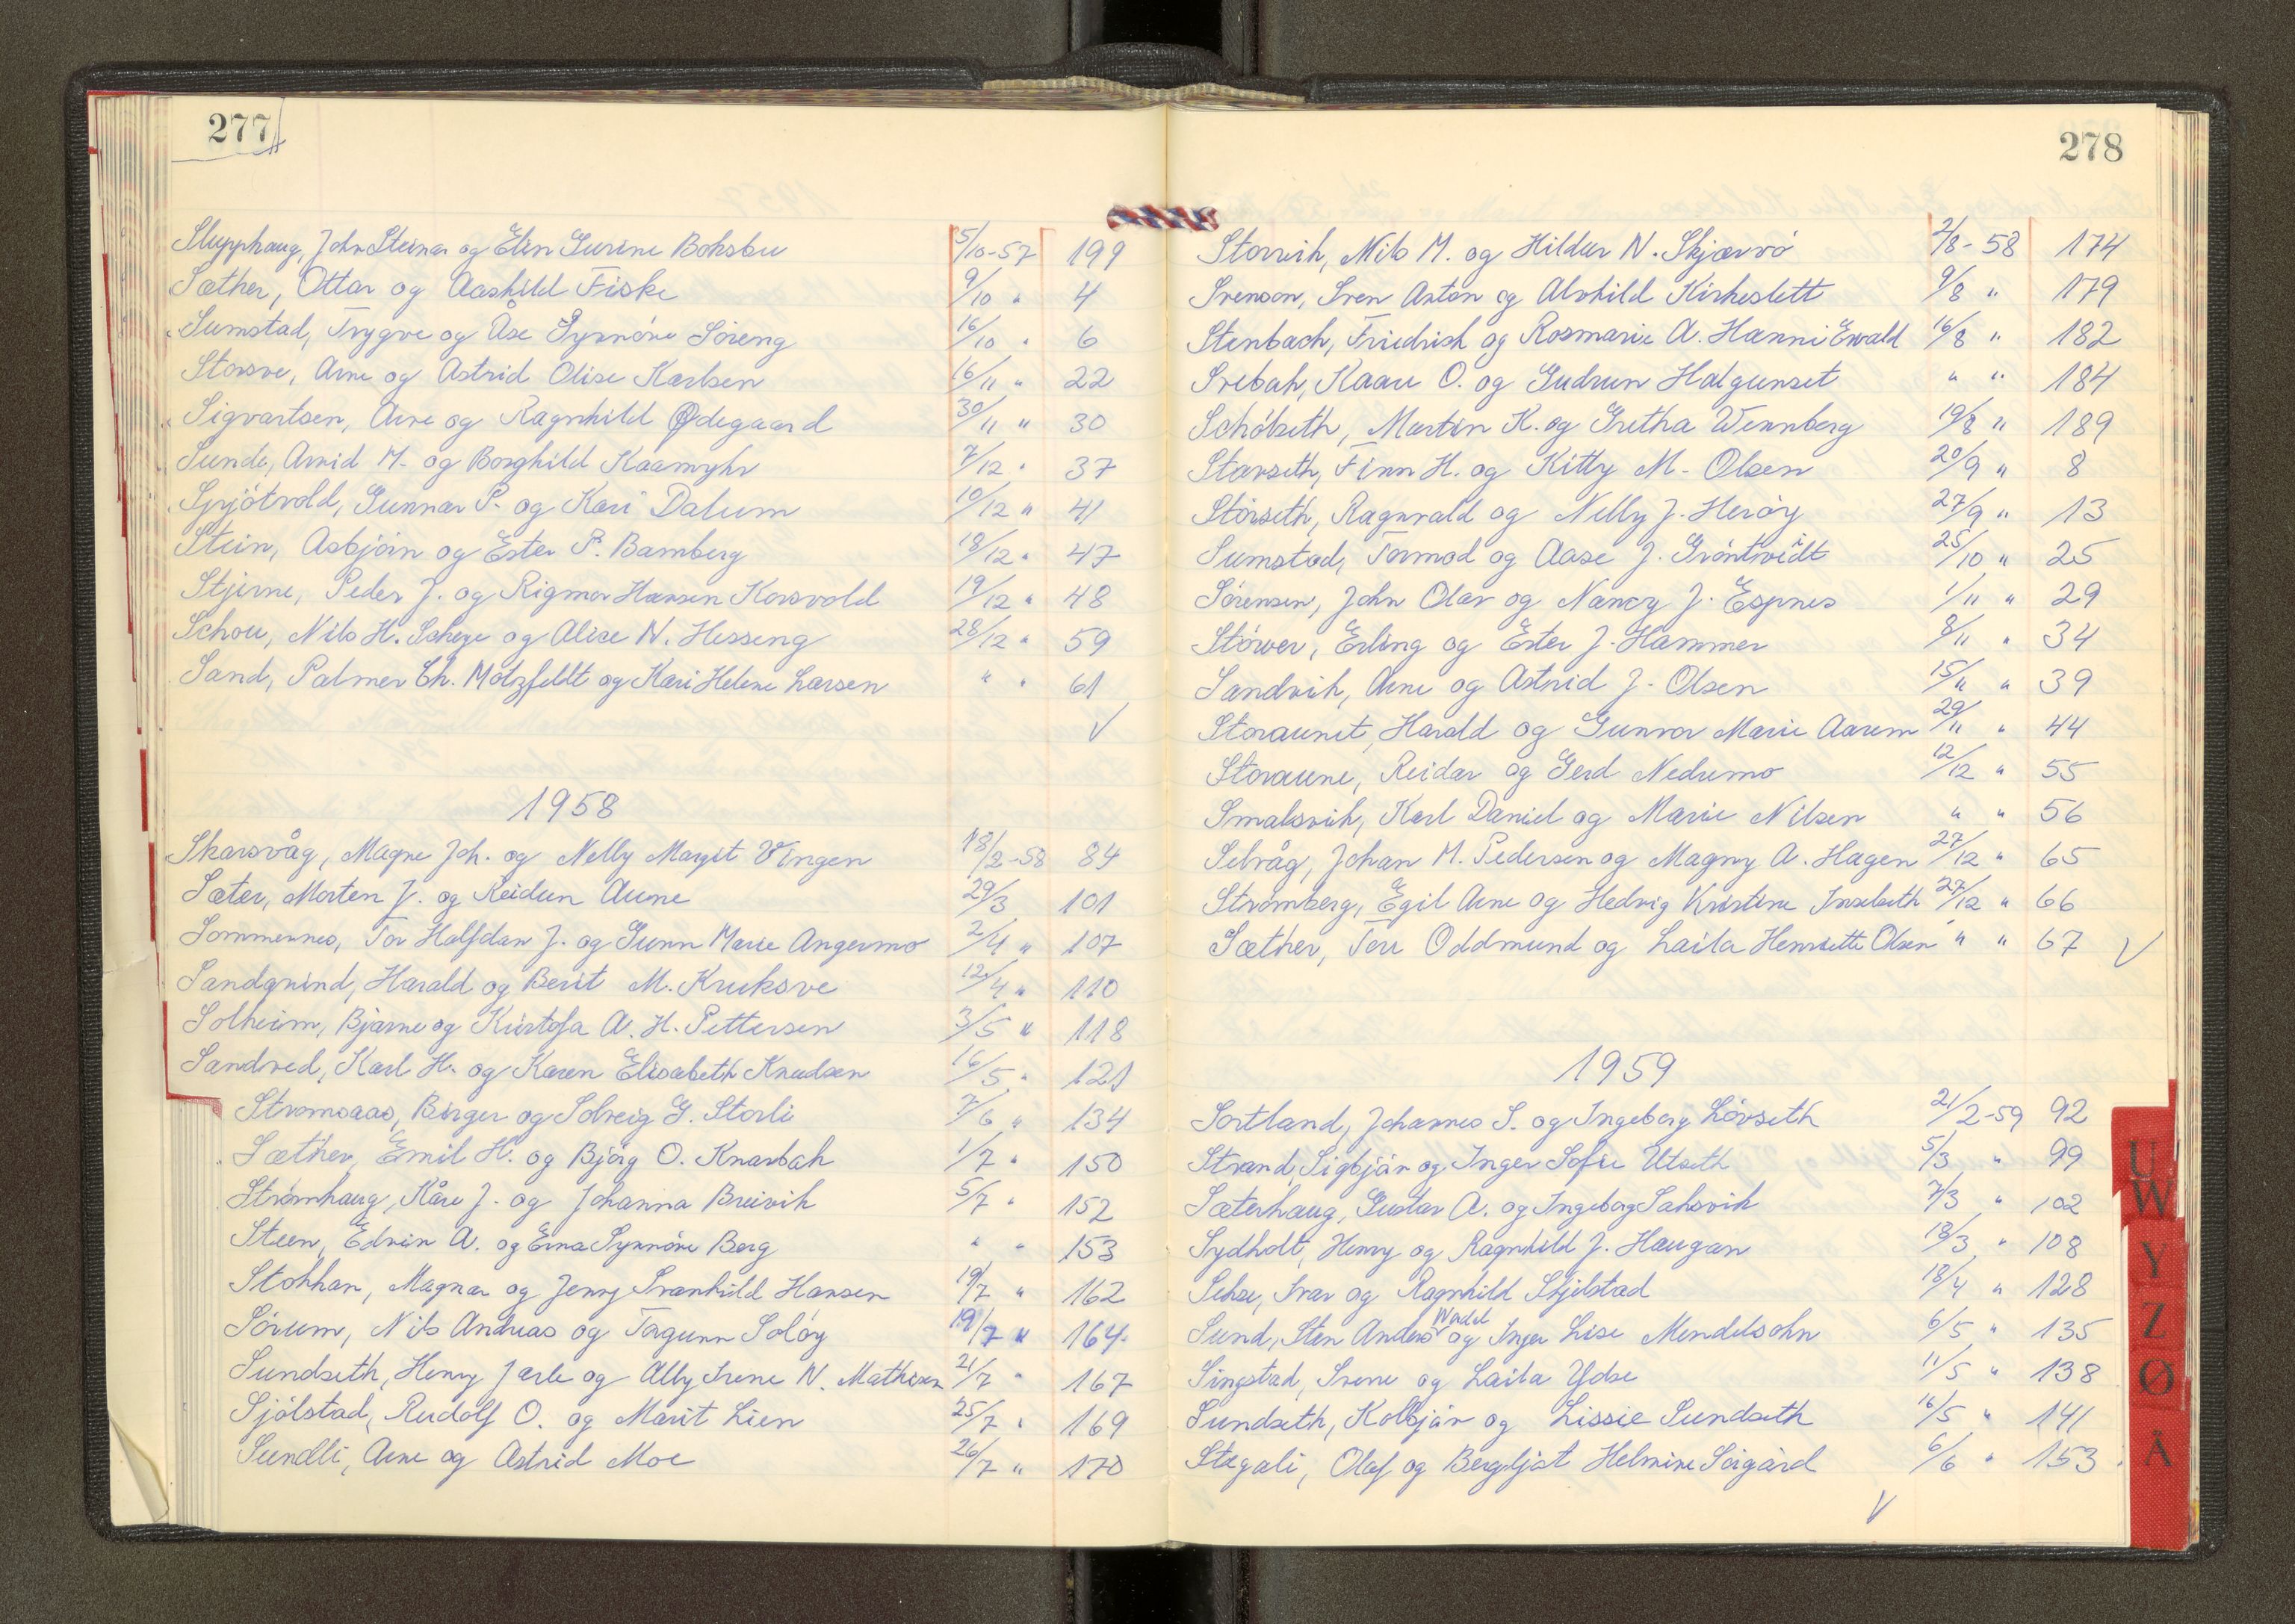 277
Slupphaug, John Steinar og Elin Gurine Boksbu 5/10-57 199
Sæther, Ottar og Aashild Fiske 9/10 " 4
Sumstad, Trygve og Åse Synnöve Söreng 16/10 " 6
Storsve, Arne og Astrid Olise Karlsen 16/11 " 22
Sigvartsen, Arve og Ragnhild Ødegaard 30/11 " 30
Sunde, Arvid M. og Borghild Kaamyhr 7/12 " 37
Spjötvold, Gunnar P. og Kari Dalum 10/12 " 41
Stein, Asbjörn og Ester P. Bamberg 18/12 " 47
Stjerne, Peder J. og Rigmor Hansen Korsvold 19/12 " 48
Schou, Nils H. og Alice N. Hesseng 28/12 " 59
Sand, Palmer Ch. Motzfeldt og Kari Helene Larsen " " 61
1958
Skarsvåg, Magne Joh. og Nelly Margit Vingen 18/2-58 84
Sæter, Morten J. og Reidun Aune 29/3 101
Sommernes, Tor Halfdan J. og Gunn Marie Angermo 2/4 " 107
Sandgrind, Harald og Berit M. Kruksve 12/4 " 110
Solheim, Bjarne og Kristofa A. H. Pettersen 3/5 " 118
Sandved, Karl H. og Karen Elisabeth Knudsen 16/5 " 121
Strømsaas, Birger og Solveig G. Storli 7/6 " 134
Sæther, Emil H. og Bjørg O. Knarbak 1/7 " 150
Strømhaug, Kåre J. og Johanna Breivik 5/7 " 152
Steen, Edvin A. og Erna Synnöve Berg " " 153
Stokkan, Magnar og Jenny Svanhild Hansen 19/7 " 162
Sörum, Nils Andreas og Torgunn Solöy 19/7 " 164
Sundseth, Henry Jarle og Ally Irene N. Mathisen 21/7 " 167
Sjölstad, Rudolf O. og Marit Lien 25/7 " 169
Sundli, Arne og Astrid Moe 26/7 " 170
278
Storvik, Nils M. og Hildur N. Skjærvö 2/8-58 174
Svenson, Sven Anton og Alvhild Kirkeslett 9/8 " 179
Stenbach, Friedrich og Rosmarie A. Hanni Ewald 16/8 " 182
Svebak, Kaare O. og Gudrun Halgunset " " 184
Schölseth, Martin K. og Gretha Wennberg 19/8 " 189
Stavseth, Finn H. og Kitty M. Olsen 20/9 " 8
Störseth, Ragnvald og Nelly J. Heröy 27/9 " 13
Sumstad, Tormod og Aase J. Gröntvedt 25/10 " 25
Sörensen, John Olav og Nancy J. Espnes 1/11 " 29
Störver, Erling og Ester J. Hammer 8/11 " 34
Sandvik, Arne og Astrid J. Olsen 15/11 " 39
Storaunet, Harald og Gunvor Marie Aarem 29/11 " 44
Storaune, Reidar og Gerd Nedrumo 12/12 " 55
Smalsvik, Karl Daniel og Marie Nilsen " " 56
Selvåg, Johan M. Pedersen og Magny A. Hagen 27/12 " 65
Strömberg, Egil Arne og Hedvig Kristine Inselseth 27/12 " 66
Sæther, Tore Oddmund og Laila Henriette Olsen " " 67
1959
Sortland, Johannes S. og Ingeborg Lövseth 21/2-59 92
Strand, Sigbjörn og Inger Sofie Utseth 5/3 " 99
Sæterhaug, Gustav A. og Ingeborg Saksvik 7/3 " 102
Sydholt, Henry og Ragnhild J. Haugan 18/3 " 108
Sehse, Ivar og Ragnhild Skjelstad 18/4 " 128
Sund, Sten Anders Wadel og Inger Lise Mendelsohn 6/5 " 135
Singstad, Sverre og Laila Ydse 11/5 " 138
Sundseth, Kolbjörn og Lissie Sundseth 16/5 " 141
Stegali, Olaf og Bergljot Helmine Sörgård 6/6 " 153
U
W
Y
Z
Ø
Å